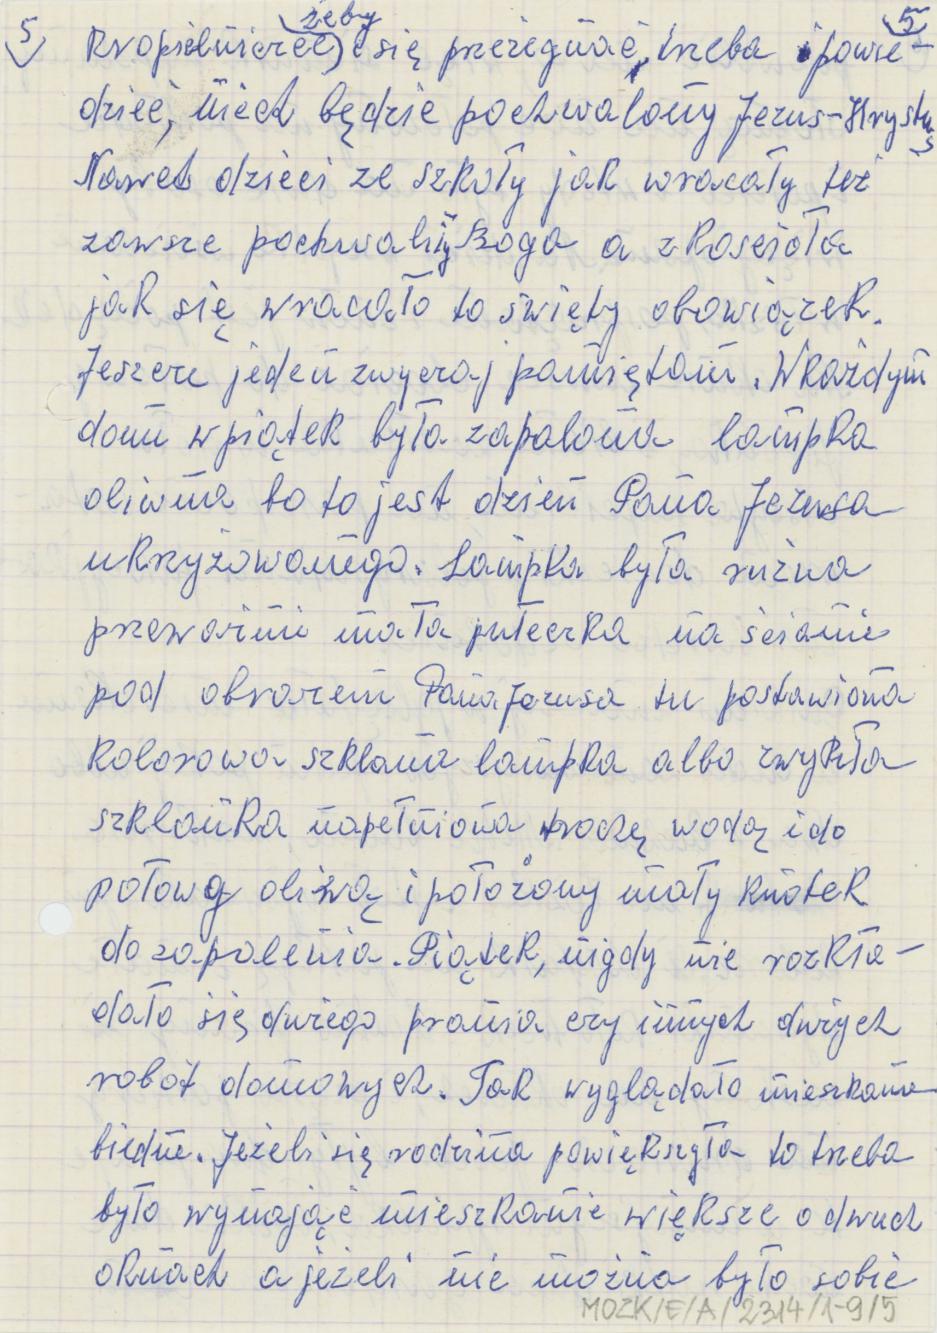 5
żeby
5
kropielniczce) się przeżegnać, trzeba i powie-
dzieć, niech będzie pochwalony Jezus-Hrystus
Nawet dzieci ze szkoły jak wracały też
zawsze pochwaliły Boga a z Kościoła
jak się wracało to święty obowiązek.
Jeszcze jeden zwyczaj pamiętam. W każdym
domu w piątek była zapalona lampka
oliwna bo to jest dzień Pana Jezusa
ukrzyżowanego. Lampka była rużna
przeważnie mała pułeczka na ścianie
pod obrazem Pana Jezusa tu postawiona
kolorowa szklana lampka albo zwykła
szklanka napełniona trochę wodą i do
połowy oliwą i położony mały knotek
do zapalenia. Piątek, nigdy nie rozkła-
dało się dużego prania czy innych dużych
robót domowych. Tak wyglądało mieszkanie
biedne. Jeżeli się rodzina powiększyła to trzeba
było wynająć mieszkanie większe o dwuch
oknach a jeżeli nie można było sobie
MOZK/E/A/2314/1-9/5